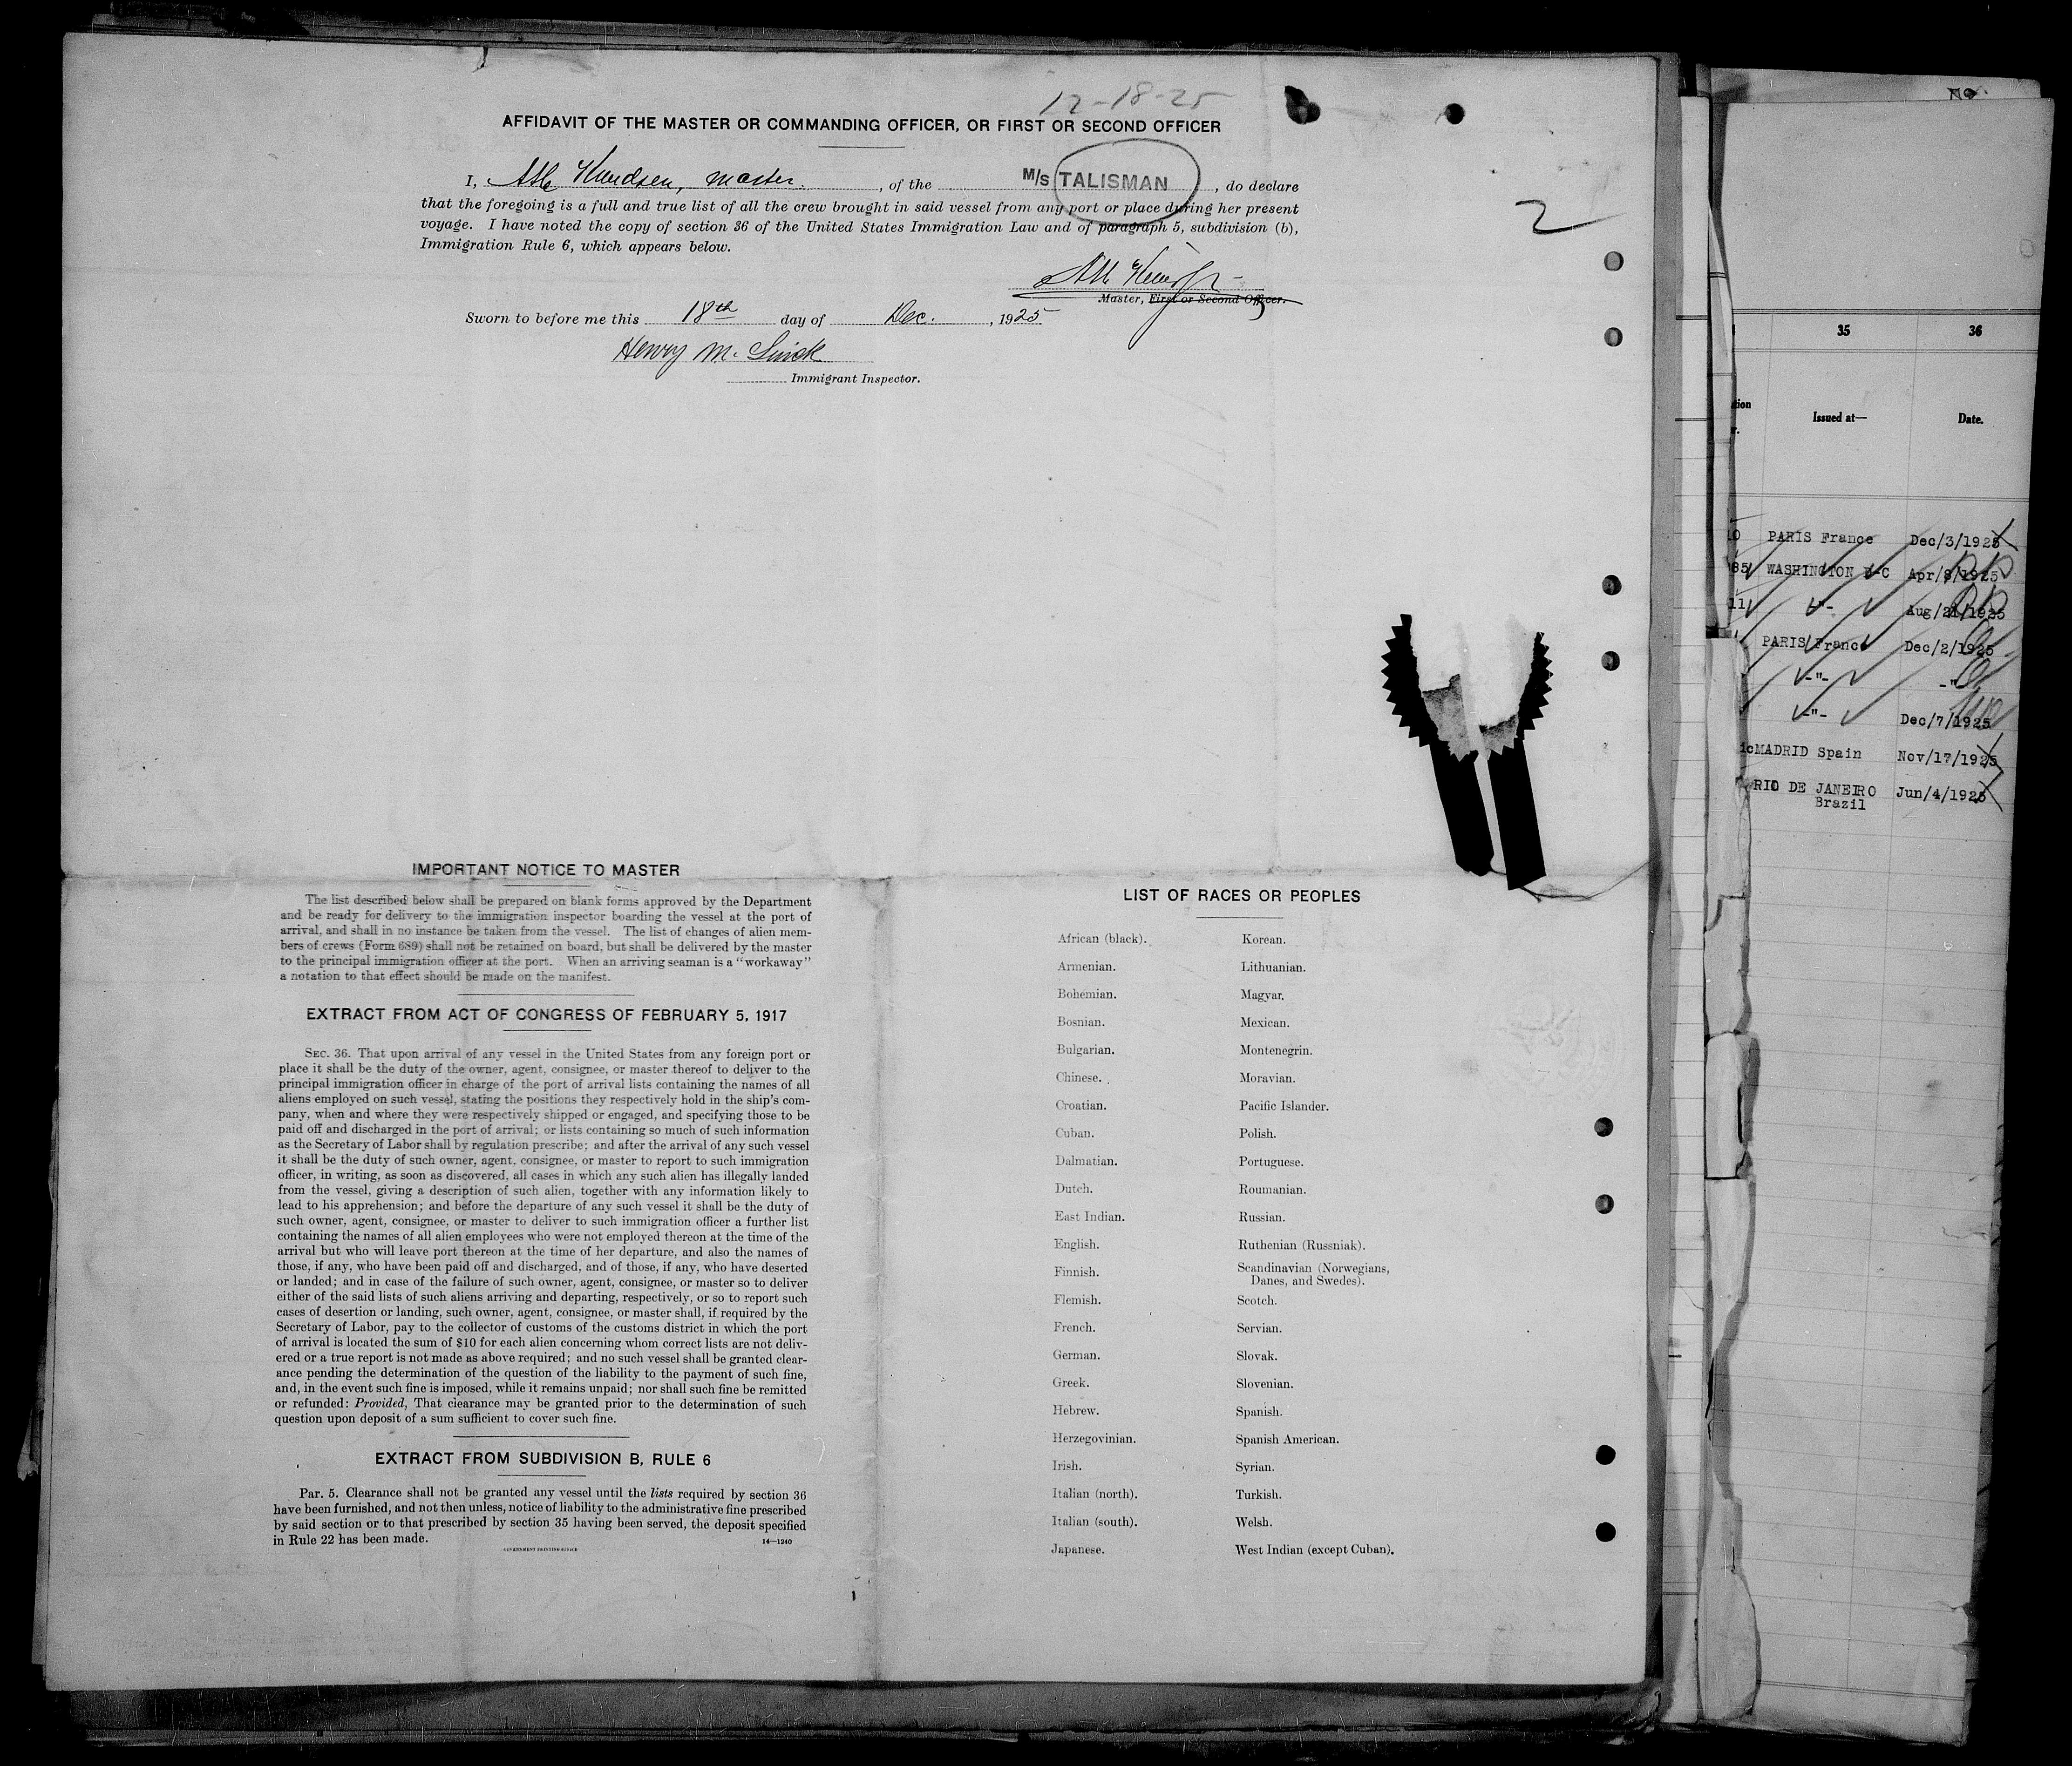 12-18-25
AFFIDAVIT OF THE MASTER OR COMMANDING OFFICER, OR FIRST OR SECOND OFFICER
I, Knudsen, master. , of the M/S TALISMAN , do declare
that the foregoing is a full and true list of all the crew brought in said vessel from any port or place during her present
voyage. I have noted the copy of section 36 of the United States Immigration Law and of paragraph 5, subdivision (b),
Immigration Rule 6, which appears below.
2
Master, First or Second Officer.
Sworn to before me this 18th day of Dec. , 1925
Henry M.
Immigrant Inspector.
IMPORTANT NOTICE TO MASTER
The list described below shall be prepared on blank forms approved by the Department
and be ready for delivery to the immigration inspector boarding the vessel at the port of
arrival, and shall in no instance be taken from the vessel. The list of changes of alien mem-
bers of crews (Form 689) shall not be retained on board, but shall be delivered by the master
to the principal immigration officer at the port. When an arriving seaman is a "workaway"
a notation to that effect should be made on the manifest.
EXTRACT FROM ACT OF CONGRESS OF FEBRUARY 5, 1917
SEC. 36. That upon arrival of any vessel in the United States from any foreign port or
place it shall be the duty of the owner, agent, consignee, or master thereof to deliver to the
principal immigration officer in charge of the port of arrival lists containing the names of all
aliens employed on such vessel, stating the positions they respectively hold in the ship's com-
pany, when and where they were respectively shipped or engaged, and specifying those to be
paid off and discharged in the port of arrival; or lists containing so much of such information
as the Secretary of Labor shall by regulation prescribe; and after the arrival of any such vessel
it shall be the duty of such owner, agent, consignee, or master to report to such immigration
officer, in writing, as soon as discovered, all cases in which any such alien has illegally landed
from the vessel, giving a description of such alien, together with any information likely to
lead to his apprehension; and before the departure of any such vessel it shall be the duty of
such owner, agent, consignee, or master to deliver to such immigration officer a further list
containing the names of all alien employees who were not employed thereon at the time of the
arrival but who will leave port thereon at the time of her departure, and also the names of
those, if any, who have been paid off and discharged, and of those, if any, who have deserted
or landed; and in case of the failure of such owner, agent, consignee, or master so to deliver
either of the said lists of such aliens arriving and departing, respectively, or so to report such
cases of desertion or landing, such owner, agent, consignee, or master shall, if required by the
Secretary of Labor, pay to the collector of customs of the customs district in which the port
of arrival is located the sum of $10 for each alien concerning whom correct lists are not deliv-
ered or a true report is not made as above required; and no such vessel shall be granted clear-
ance pending the determination of the question of the liability to the payment of such fine,
and, in the event such fine is imposed, while it remains unpaid; nor shall such fine be remitted
or refunded: Provided, That clearance may be granted prior to the determination of such
question upon deposit of a sum sufficient to cover such fine.
EXTRACT FROM SUBDIVISION B, RULE 6
Par. 5. Clearance shall not be granted any vessel until the lists required by section 36
have been furnished, and not then unless, notice of liability to the administrative fine prescribed
by said section or to that prescribed by section 35 having been served, the deposit specified
in Rule 22 has been made.
14—1240
GOVERNMENT PRINTING OFFICE
LIST OF RACES OR PEOPLES
African (black).
Armenian.
Bohemian.
Bosnian.
Bulgarian.
Chinese.
Croatian.
Cuban.
Dalmatian.
Dutch.
East Indian.
English.
Finnish.
Flemish.
French.
German.
Greek.
Hebrew.
Herzegovinian.
Irish.
Italian (north).
Italian (south).
Japanese.
Korean.
Lithuanian.
Magyar.
Mexican.
Montenegrin.
Moravian.
Pacific Islander.
Polish.
Portuguese.
Roumanian.
Russian.
Ruthenian (Russniak).
Scandinavian (Norwegians,
Danes, and Swedes).
Scotch.
Servian.
Slovak.
Slovenian.
Spanish.
Spanish American.
Syrian.
Turkish.
Welsh.
West Indian (except Cuban).
35 36
Issued at— Date.
PARIS France Dec/3/1925
85 WASHINGTON D-C Apr/8/1925
11 -"- Aug/21/1925
PARIS France Dec/2/1925
-"- -"-
-"- Dec/7/1925
MADRID Spain Nov/17/1925
RIO DE JANEIRO Jun/4/1925
Brazil